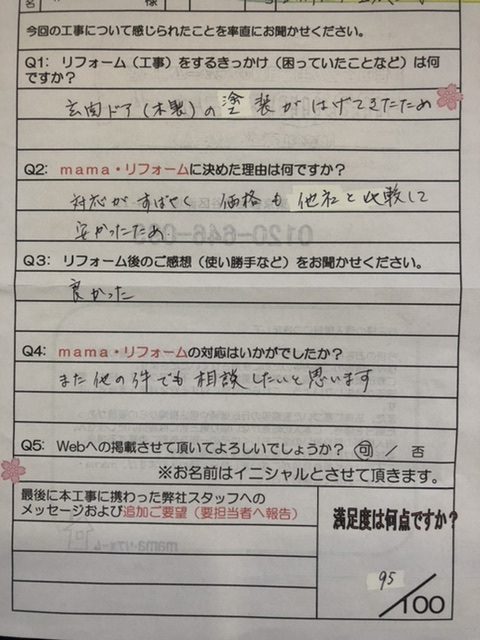 名 様
今回の工事について感じられたことを率直にお聞かせください。
Q1: リフォーム（工事）をするきっかけ（困っていたことなど）は何
ですか？
玄関ドア（木製）の塗装がはげてきたため
Q2: mama・リフォームに決めた理由は何ですか？
対応がすばやく 価格も他社と比較して
安かったため.
Q3: リフォーム後のご感想（使い勝手など）をお聞かせください。
良かった
Q4: mama・リフォームの対応はいかがでしたか？
また他の件でも相談したいと思います
Q5: Webへの掲載させて頂いてよろしいでしょうか？ 可 ／ 否
※お名前はイニシャルとさせて頂きます。
最後に本工事に携わった弊社スタッフへの
メッセージおよび追加ご要望（要担当者へ報告）
満足度は何点ですか？
95
/100